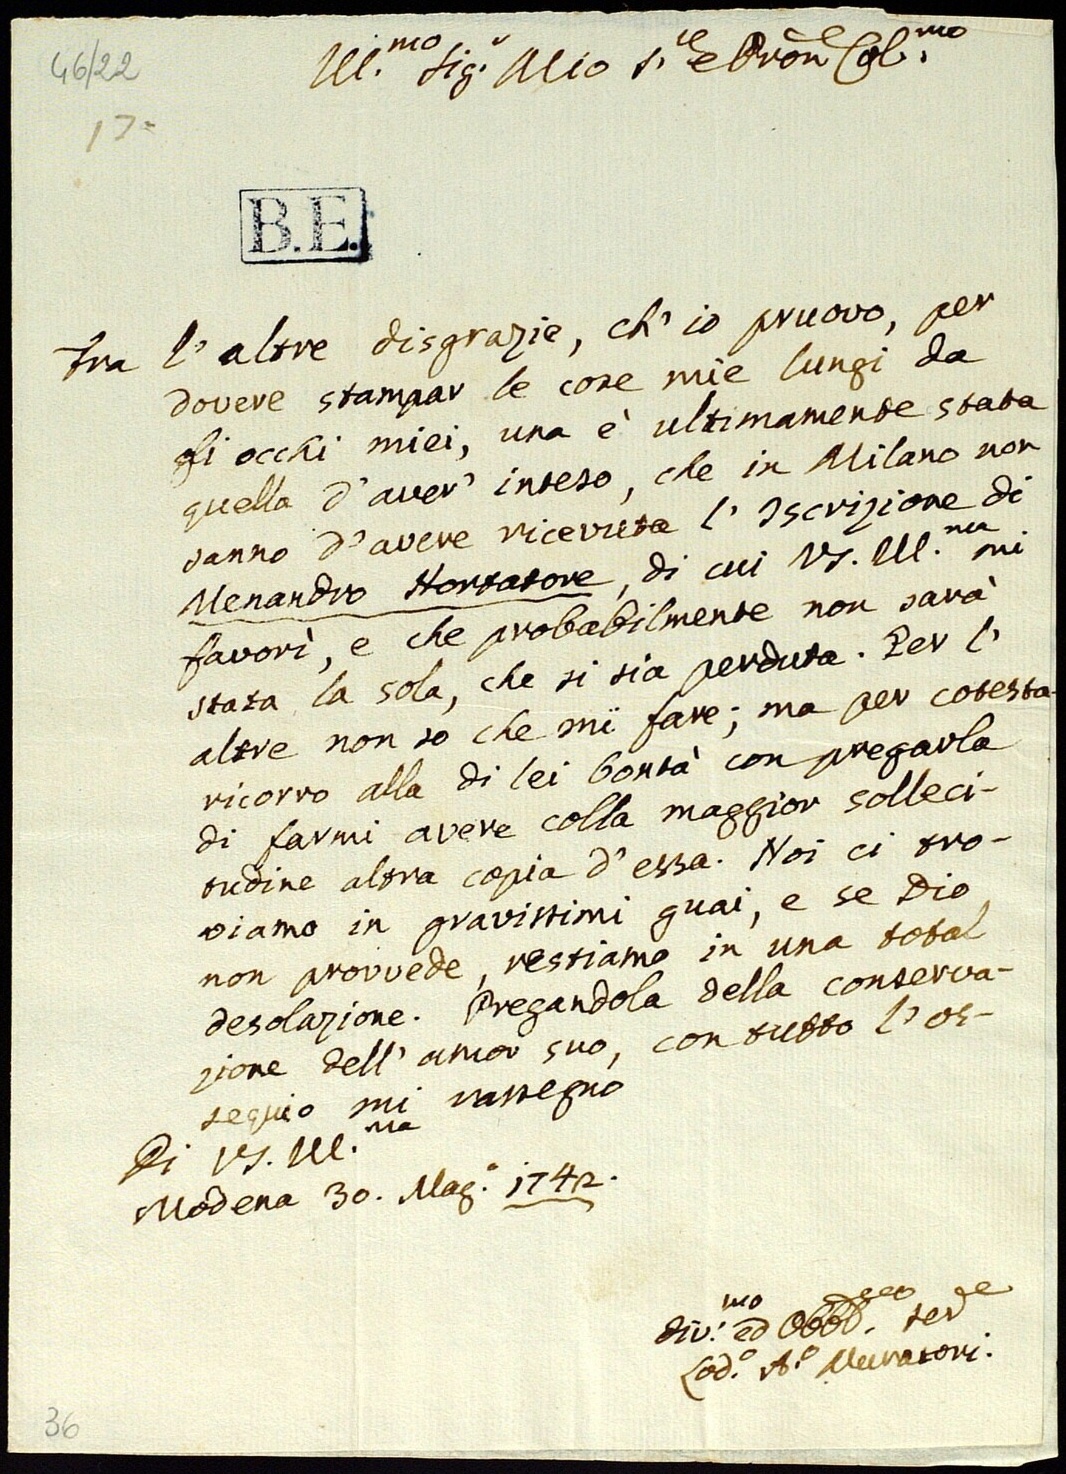 46/22
17
Ill.mo Sig.r Mio S.re e Pron Col.mo
B.E.
Tra l' altre disgrazie, ch' io pruovo, per
dovere stampar le cose mie lungi da
gli occhi miei, una è ultimamente stata
quella d' aver' inteso, che in Milano non
sanno d' avere ricevuta l' Iscrizione di
Menandro Hortatore, di cui VS. Ill.ma mi
favorì, e che probabilmente non sarà
stata la sola, che si sia perduta. Per l'
altre non so che mi fare; ma per cotesta
ricorro alla di lei bontà con pregarla
di farmi avere colla maggior solleci-
tudine altra copia d' essa. Noi ci tro-
viamo in gravissimi guai, e se Dio
non provvede, restiamo in una total
desolazione. Pregandola della conserva-
zione dell' amor suo, con tutto l' os-
sequio mi rassegno
Di VS. Ill.ma
Modena 30. Mag.o 1742.
Div.mo ed Obbl. ser.e
Lod.o A.o Muratori.
36